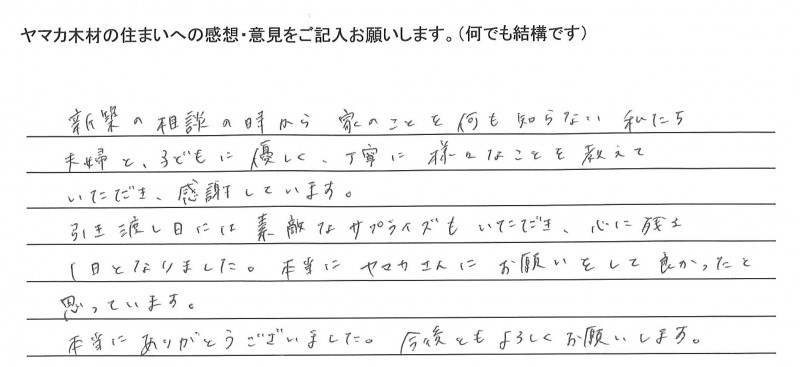 ヤマカ木材の住まいへの感想・意見をご記入お願いします。(何でも結構です)
新築の相談の時から 家のことを何も知らない 私たち
夫婦と、子どもに優しく、丁寧に様々なことを教えて
いただき、感謝しています。
引き渡し日には素敵なサプライズもいただき、心に残る
1日となりました。本当にヤマカさんにお願いをして良かったと
思っています。
本当にありがとうございました。今後ともよろしくお願いします。